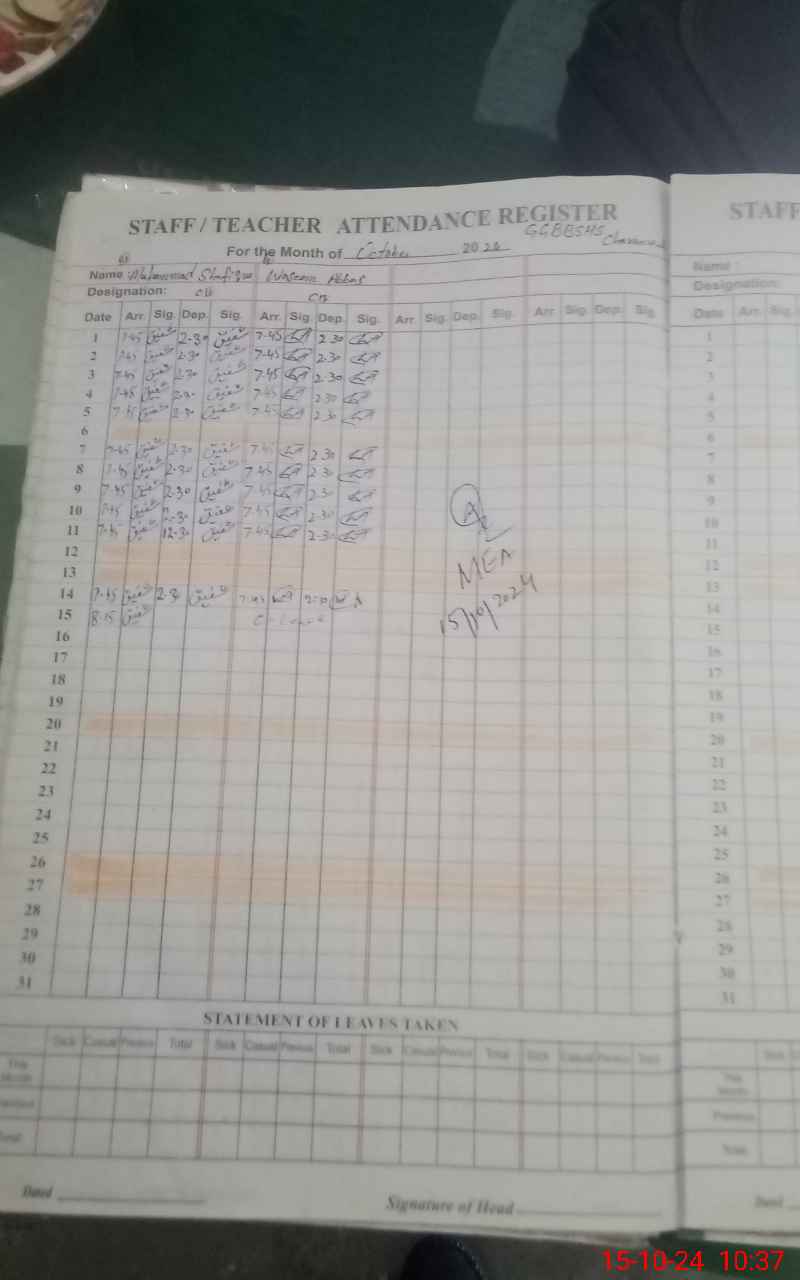 STAFF / TEACHER ATTENDANCE REGISTER
STAFF
For the Month of October 2024
Name: Muhammad Shafique Waseem Abbas
Name
Designation:
Designation:
Date Arr. Sig. Dep. Sig. Arr. Sig. Dep. Sig. Arr. Sig. Dep. Sig. Arr. Sig. Dep. Sig.
Date Arr. Sig.
1 7-45 شفیق 2-30 شفیق 7-45 2-30
2 7-45 شفیق 2-30 شفیق 7-45 2-30
3 7-45 شفیق 2-30 شفیق 7-45 2-30
4 7-45 شفیق 2-30 شفیق 7-45 2-30
5 7-45 شفیق 2-30 شفیق 7-45 2-30
6
7 7-45 شفیق 2-30 شفیق 7-45 2-30
8 7-45 شفیق 2-30 شفیق 7-45 2-30
9 7-45 شفیق 2-30 شفیق 7-45 2-30
10 7-45 شفیق 2-30 شفیق 7-45 2-30
11 7-45 شفیق 12-30 شفیق 7-45 2-30
12
13
14 7-45 شفیق 2-30 شفیق 7-45 2-30
15 8-15 شفیق
16
17
18
19
20
21
22
23
24
25
26
27
28
29
30
31
MEA
15/10/2024
1
2
3
4
5
6
7
8
9
10
11
12
13
14
15
16
17
18
19
20
21
22
23
24
25
26
27
28
29
30
31
STATEMENT OF LEAVES TAKEN
Sick Casual Previous Total Sick Casual Previous Total Sick Casual Previous Total Sick Casual Previous Total
This Month
Previous
Total
Dated
Signature of Head
15-10-24 10:37